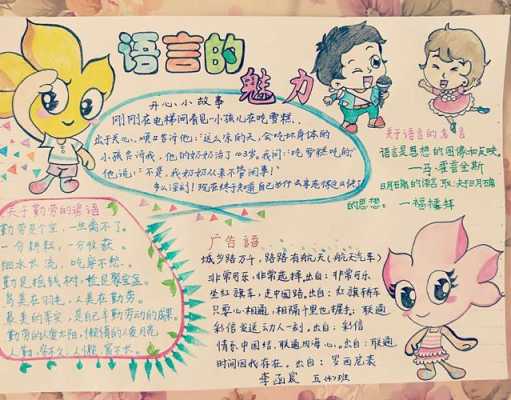 语言的魅力
开心小故事
刚刚在电梯间看见一小孩儿在吃雪糕,
出于关心,顺口告诉他:"这么凉的天,会吃坏身体的
小孩告诉我,他的奶奶活了103岁,我问:"吃雪糕吃的"
他说:"不是,我奶奶从来不管闲事!"
多么深刻!现在终于知道自己为什么
关于语言的名言
语言是思想的图像和反映。
—马·霍普金斯
明确的语言,取决于明确
的思想。—福楼拜
关于勤劳的谚语
勤劳是个宝,一生离不了。
一分耕耘,一分收获。
细水长流,吃穿不愁。
勤是摇钱树,俭是聚宝盆。
鸟美在羽毛,人美在勤劳。
最美的荣宝,是自己辛勤劳动的成果
勤劳的人爱太阳,懒惰的人爱月亮
广告语
城乡路万千,路路有航天(航天汽车)
非常可乐,非常选择,出自:非常可乐
坐红旗车,走中国路。出自:红旗轿车
只要心相通,相隔千里也握手:联通
彩信发送,心动人一刻,出自:彩信
情系中国结,联通四海心。出自:联通
时间因我存在。出自:罗西尼表
李函宸 五(4)班